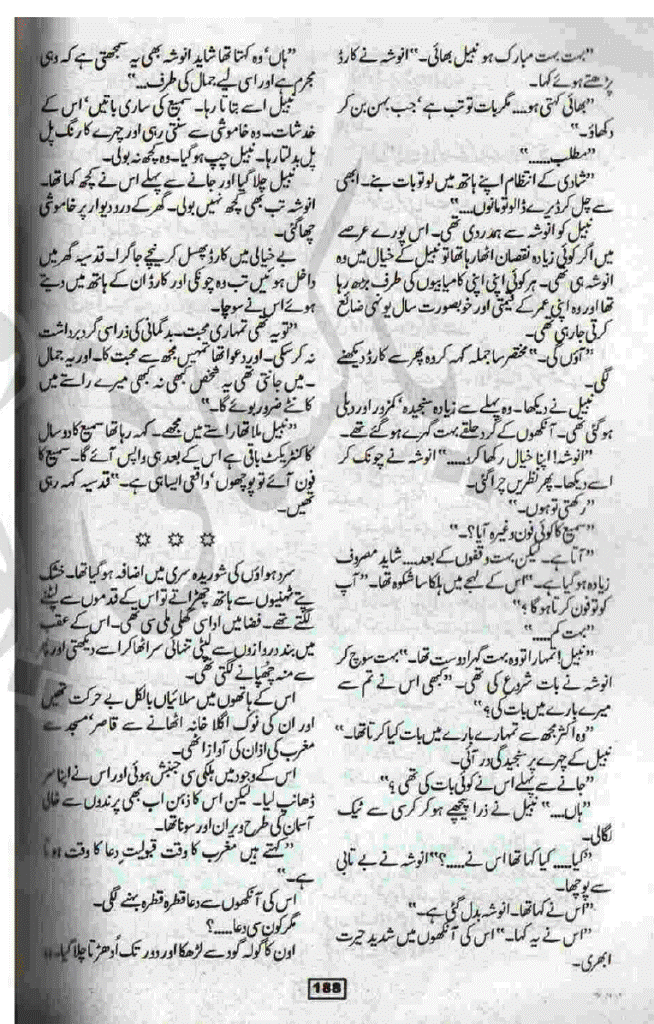 ”بہت بہت مبارک ہو نبیل بھائی۔“ انوشہ نے کارڈ
پڑھتے ہوئے کہا۔
”بھائی کہتی ہو.... مگر بات تو تب ہے‘ جب بہن بن کر
دکھاؤ۔“
”مطلب......“
”شادی کے انتظام اپنے ہاتھ میں لو تو بات بنے۔ ابھی
سے چل کر ڈیرے ڈالو تو مانوں....“
نبیل کو انوشہ سے ہمدردی تھی۔ اس پورے عرصے
میں اگر کوئی زیادہ نقصان اٹھا رہا تھا تو نبیل کے خیال میں وہ
انوشہ ہی تھی۔ ہر کوئی اپنی اپنی کامیابیوں کی طرف بڑھ رہا
تھا اور وہ اپنی عمر کے قیمتی اور خوبصورت سال یونہی ضائع
کرتی جا رہی تھی۔
”آؤں گی۔“ مختصر سا جملہ کہہ کر وہ پھر سے کارڈ دیکھنے
لگی۔
نبیل نے دیکھا۔ وہ پہلے سے زیادہ سنجیدہ‘ کمزور اور دبلی
ہو گئی تھی۔ آنکھوں کے گرد حلقے بہت گہرے ہو گئے تھے۔
”انوشہ! اپنا خیال رکھا کرو.....“ انوشہ نے چونک کر
اسے دیکھا۔ پھر نظریں چرا گئی۔
”رکھتی تو ہوں۔“
”سمیع کا کوئی فون وغیرہ آیا؟۔“
”آتا ہے۔ لیکن بہت وقفوں کے بعد.... شاید مصروف
زیادہ ہو گیا ہے۔“ اس کے لہجے میں ہلکا سا شکوہ تھا۔ ”آپ
کو تو فون کرتا ہو گا؟“
”بہت کم.....“
”نبیل! تمہارا تو وہ بہت گہرا دوست تھا۔“ بہت سوچ کر
انوشہ نے بات شروع کی تھی۔ ”کبھی اس نے تم سے
میرے بارے میں بات کی؟“
”وہ اکثر مجھ سے تمہارے بارے میں بات کیا کرتا تھا۔“
نبیل کے چہرے پر سنجیدگی در آئی۔
”جانے سے پہلے اس نے کوئی بات کی تھی؟“
”ہاں....“ نبیل نے ذرا پیچھے ہو کر کرسی سے ٹیک
لگالی۔
”کیا..... کیا کہا تھا اس نے.....؟“ انوشہ نے بے تابی
سے پوچھا۔
”اس نے کہا تھا۔ انوشہ بدل گئی ہے۔“
”اس نے یہ کہا۔“ اس کی آنکھوں میں شدید حیرت
ابھری۔
”ہاں‘ وہ کہتا تھا شاید انوشہ بھی یہ سمجھتی ہے کہ وہی
مجرم ہے اور اسی لیے جمال کی طرف....“
نبیل اسے بتاتا رہا۔ سمیع کی ساری باتیں‘ اس کے
خدشات۔ وہ خاموشی سے سنتی رہی اور چہرے کا رنگ پل
پل بدلتا رہا۔ نبیل چپ ہو گیا۔ وہ کچھ نہ بولی۔
نبیل چلا گیا اور جانے سے پہلے اس نے کچھ کہا تھا۔
انوشہ تب بھی کچھ نہیں بولی۔ گھر کے در و دیوار پر خاموشی
چھا گئی۔
بے خیالی میں کارڈ پھسل کر نیچے جا گرا۔ قدسیہ گھر میں
داخل ہوئیں تب وہ چونکی اور کارڈ ان کے ہاتھ میں دیتے
ہوئے اس نے سوچا۔
”تو یہ تھی تمہاری محبت۔ بدگمانی کی ذرا سی گرد برداشت
نہ کر سکی۔ اور دعوا تھا تمہیں مجھ سے محبت کا۔ اور یہ جمال
۔ میں جانتی تھی یہ شخص کبھی نہ کبھی میرے راستے میں
کانٹے ضرور بوئے گا۔“
”نبیل ملا تھا راستے میں مجھے۔ کہہ رہا تھا سمیع کا دو سال
کا کنٹریکٹ باقی ہے اس کے بعد ہی واپس آئے گا۔ سمیع کا
فون آئے تو پوچھوں‘ واقعی ایسا ہی ہے۔“ قدسیہ کہہ رہی
تھیں۔
☼ ☼ ☼
سرد ہواؤں کی شوریدہ سری میں اضافہ ہو گیا تھا۔ خشک
پتے ٹہنیوں سے ہاتھ چھڑاتے تو اس کے قدموں سے لپٹنے
لگتے تھے۔ فضا میں اداسی گھلی ملی سی تھی۔ اس کے عقب
میں بند دروازوں سے لپٹی تنہائی سر اٹھا کر اسے دیکھتی اور پھر
سے منہ چھپانے لگتی تھی۔
اس کے ہاتھوں میں سلائیاں بالکل بے حرکت تھیں
اور ان کی نوک اگلا خانہ اٹھانے سے قاصر‘ مسجد سے
مغرب کی اذان کی آواز اٹھی۔
اس کے وجود میں ہلکی سی جنبش ہوئی اور اس نے اپنا سر
ڈھانپ لیا۔ لیکن اس کا ذہن اب بھی پرندوں سے خالی
آسمان کی طرح ویران اور سونا تھا۔
”کہتے ہیں مغرب کا وقت قبولیت دعا کا وقت ہوتا
ہے۔“
اس کی آنکھوں سے دعا قطرہ قطرہ بہنے لگی۔
مگر کون سی دعا.....؟
اون کا گولہ گود سے لڑھکا اور دور تک اُدھڑتا چلا گیا۔
188